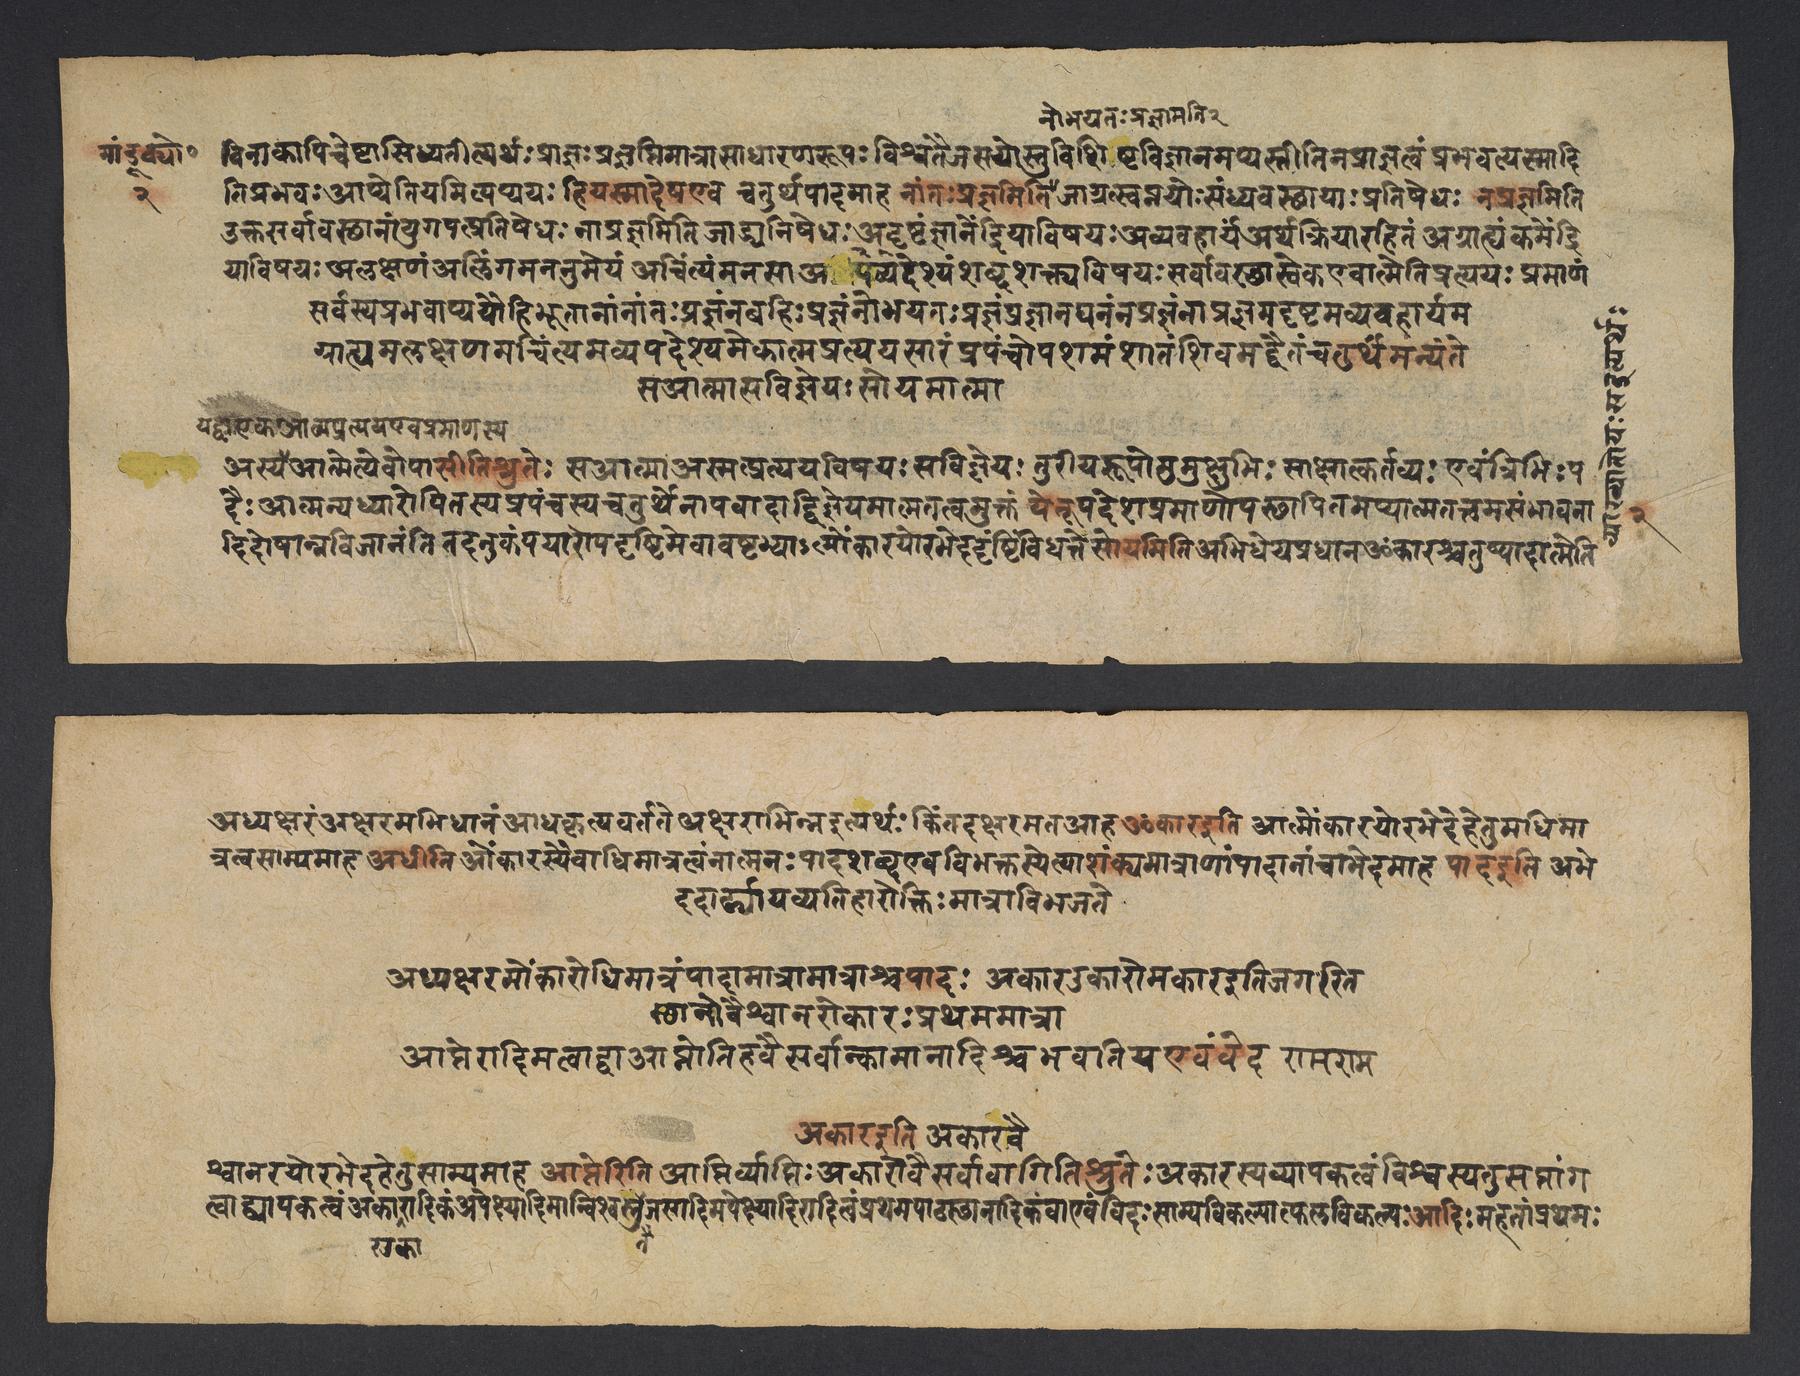 नोभयतःप्रज्ञमिति२
मांडूक्यो०
२
विनाकापिचेष्टासिध्यतीत्यर्थः प्राज्ञः प्रज्ञप्तिमात्रासाधारणरूपः विश्वतैजसयोस्तुविशिष्टविज्ञानमप्यस्तीतिनप्राज्ञत्वं प्रभवत्यस्मादि
तिप्रभवः आप्येतियमित्यप्ययः हियस्मादेषएव चतुर्थपादमाह नांतःप्रज्ञमिति जाग्रत्स्वप्नयोःसंध्यवस्छायाः प्रतिषेधः नप्रज्ञमिति
उक्तसर्वावस्छानांयुगपत्प्रतिषेधः नाप्रज्ञमिति जाड्यनिषेधः अदृष्टंज्ञानेंद्रियाविषयः अव्यवहार्यंअर्थक्रियारहितं अग्राह्यं कर्मेंद्रि
याविषयः अलक्षणं अलिंगमननुमेयं अचिंत्यंमनसा अव्यपदेश्यंशब्दशक्त्यविषयः सर्वावस्छास्वेकएवात्मेतिप्रत्ययः प्रमाणं
सर्वस्यप्रभवाप्ययौहिभूतानांनांतःप्रज्ञंनबहिःप्रज्ञंनोभयतःप्रज्ञंप्रज्ञानघनंनप्रज्ञंनाप्रज्ञमदृष्टमव्यवहार्यम
ग्राह्यमलक्षणमचिंत्यमव्यपदेश्यमेकात्मप्रत्ययसारंप्रपंचोपशमंशातंशिवमद्वैतंचतुर्थंमन्यंते
सआत्मासविज्ञेयः सोयमात्मा
यद्वाएकआत्मप्रत्ययएवप्रमाणस्य
अस्यआत्मेत्येवोपासीतिश्रुतेः सआत्माअस्मत्प्रत्ययविषयः सविज्ञेयः तुरीयरूपोमुमुक्षुभिः साक्षात्कर्तव्यः एवंत्रिभिः प
दैः आत्मन्यध्यारोपितस्यप्रपंचस्यचतुर्थेनापवादाद्विज्ञेयमात्मतत्वमुक्तं येनूपदेशप्रमाणोपस्छापितमप्यात्मतत्वमसंभावना
दिदोषान्नविजानंति तदनुकंपयारोपदृष्टिमेवावष्टभ्याःत्मोंकारयोरभेददृष्टिंविधत्ते सोयमिति अभिधेयप्रधानॐकारश्चतुष्पादात्मेति
२
अध्यक्षरंअक्षरमभिधानंआधिकृत्यवर्तते अक्षराभिन्नइत्यर्थः किंतदक्षरमतआह ॐकारइति आत्मोंकारयोरभेदेहेतुमधिमा
त्रत्वसाम्यमाह अधीति ओंकारस्यैवाधिमात्रत्वंनात्मनः पादशब्दएवविभक्तस्येत्याशंक्यमात्राणांपादानांचाभेदमाह पादइति अभे
ददार्ढ्यायव्यतिहारोक्तिः मात्राविभजते
अध्यक्षरमोंकारोधिमात्रंपादामात्रामात्राश्चपादः अकारउकारोमकारइतिजगरित
छानोवैश्वानरोकारः प्रथममात्रा
आप्तेरादिमत्वाद्वाआप्नोतिहवैसर्वान्कामानादिश्चभवतियएवंवेद रामराम
अकारइति अकारवै
श्वानरयोरभेदहेतुसाम्यमाह आप्तेरिति आप्तिर्व्याप्तिः अकारोवैसर्वावागितिश्रुतेः अकारस्यव्यापकत्वंविश्वस्यतुसप्तांग
त्वाद्व्यापकत्वं प्रथमपादछानादिकंवाएवंविदः साम्यविकल्पात्फलविकल्पः आदिः महतांप्रथमः